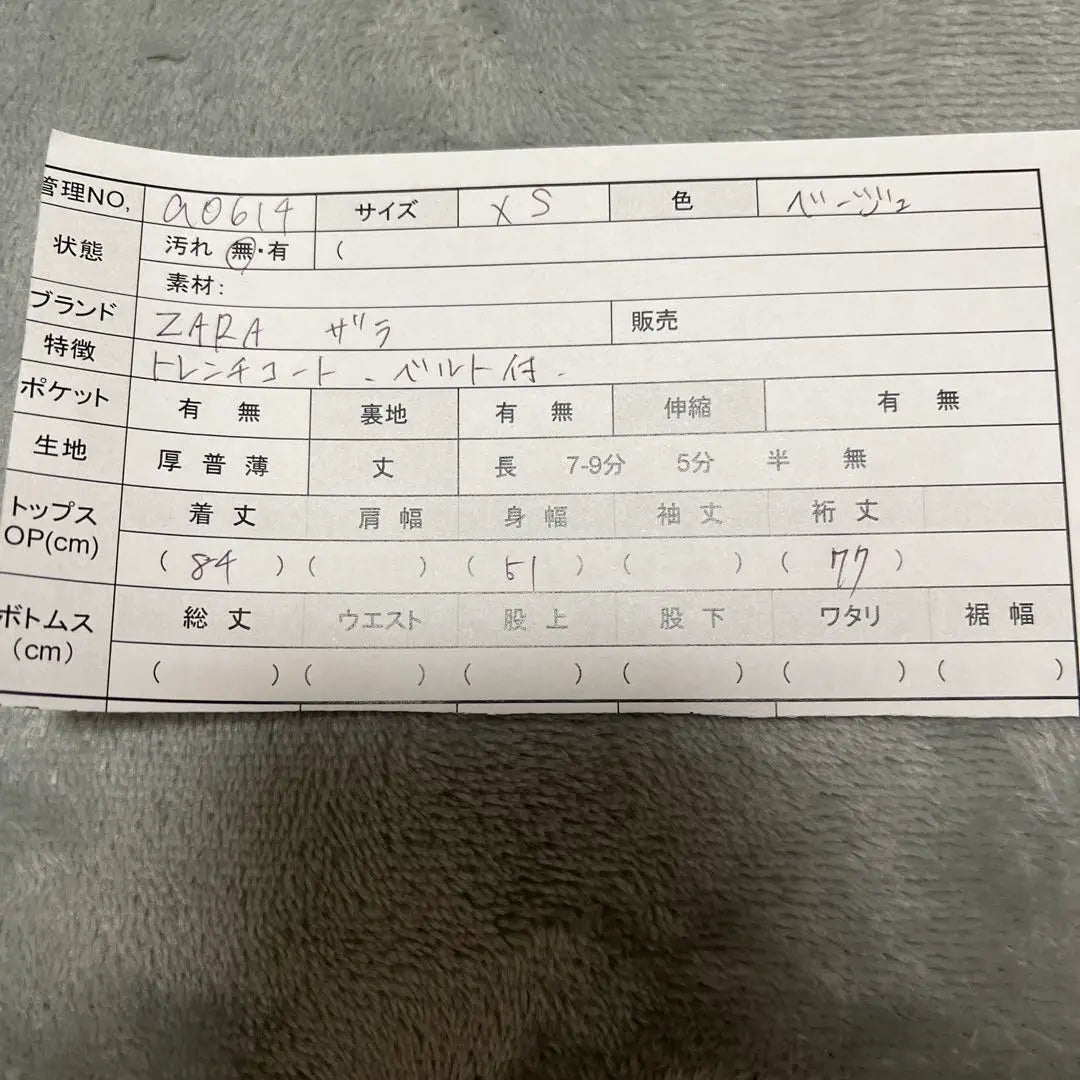 管理NO. a0614 サイズ XS 色 ベージュ
状態 汚れ 無・有 (
素材:
ブランド ZARA ザラ 販売
特徴 トレンチコート、ベルト付.
ポケット 有 無 裏地 有 無 伸縮 有 無
生地 厚 普 薄 丈 長 7-9分 5分 半 無
トップス OP(cm) 着丈 肩幅 身幅 袖丈 裄丈
( 84 ) ( ) ( 51 ) ( ) ( 77 )
ボトムス (cm) 総丈 ウエスト 股上 股下 ワタリ 裾幅
( ) ( ) ( ) ( ) ( ) ( )